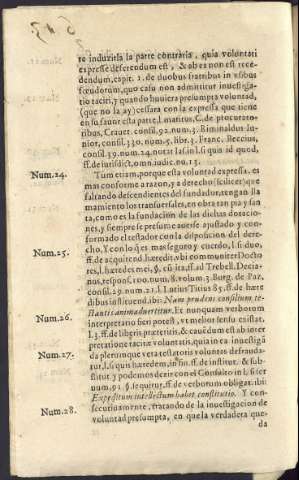 te induzirla la parte contraria, quia voluntati
expresse deferendum est, & ab ea non est rece-
dendum, capit. 1. de duobus fratribus in vsibus
feudorum, quo casu non admittitur inuestiga-
tio taciti, y quando huuiera presumpta voluntad,
(que no la ay) cessara con la expressa que tiene
en su fauor esta parte,
Crauet. consil. 92. num. 3. Biminaldus Iu-
nior, consil. 330. num. 5. lib. 3. Franc. Beccius,
consil. 39. num. 24. notat Ias. in l. si quis id quod.
ff. de iurisdict. omn. iudic. no. 15.
Num. 24. Tum etiam, porque esta voluntad expressa, es
mas conforme a razon, y a derecho (scilicet) que
faltando descendientes del fundador, tengan lla-
mamiento los transuersales, en obra tan pia y san-
ta, como es la fundacion de las dichas dotacio-
nes, y siempre se presume auerse ajustado y con-
formado el testador con la disposicion del dere-
Num. 25. cho, Y con lo que es mas seguro y cuerdo, l. si duo,
ff. de acquirend. hæredit. vbi communiter Docto-
res, l. hæredes mei, §. cū ita, ff. ad Trebell. Decia-
nus, respons. 100. num. 8. volum. 3. Burg. de Paz,
consil. 29. num. 21. l. Lucius Titius 85. ff. de hære
dibus instituend. ibi: Nam prudens consilium te-
Num. 26. stantis animaduertitur. Et nunquam verborum
interpretatio fieri potest, vt melior sensu existat,
l. 3. ff. de liberis præteritis, & cauēdum est ab inter
pretatione tacitæ voluntatis, quia in ea inuestigā
Num. 27. da plerunque vera testatoris voluntas defrauda-
tur, l. si quis hæredem, in fin. ff. de institut. & sub-
stitut. y podemos dezir con el Consulto in l. si ser
uum, 91. §. sequitur, ff. de verborum obligat. ibi:
Expeditum intellectum habet constitutio. Y con-
Num. 28. secutiuamente, tratando de la inuestigacion de
voluntad presumpta, en que la verdadera que-
da